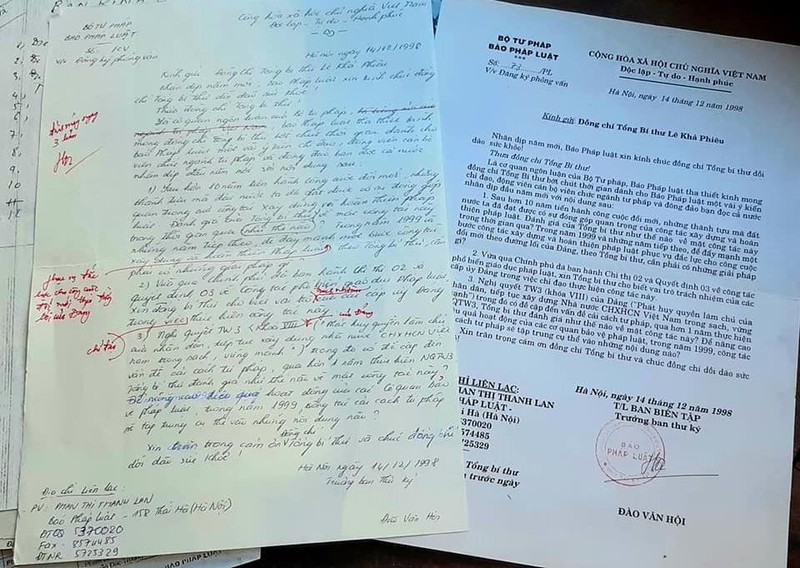 BỘ TƯ PHÁP
BÁO PHÁP LUẬT
V/v Đăng ký phỏng vấn
Cộng hòa xã hội chủ nghĩa Việt Nam
Độc lập - Tự do - Hạnh phúc
Hà nội ngày 14/12/1998
Kính gửi Đồng chí Tổng bí thư Lê Khả Phiêu
Nhân dịp năm mới Pháp luật xin kính chúc đồng
chí Tổng bí thư dồi dào sức khỏe!
Thưa đồng chí Tổng bí thư!
Là cơ quan ngôn luận của Bộ tư pháp,
báo Pháp luật tha thiết kính
mong đồng chí Tổng bí thư bớt chút thời gian dành cho
báo Pháp luật một vài ý kiến chỉ đạo, động viên cán bộ
viên chức ngành tư pháp và đông đảo bạn đọc cả nước
nhân dịp đầu năm mới với nội dung sau:
1) Sau hơn 10 năm tiến hành công cuộc đổi mới, những
thành tựu mà đất nước ta đã đạt được có sự đóng góp
quan trọng của công tác xây dựng và hoàn thiện pháp
luật. Đánh giá của Tổng bí thư về mặt công tác này
trong thời gian qua như thế nào? Trong năm 1999 và
những năm tiếp theo, để đẩy mạnh một bước công tác
xây dựng và hoàn thiện pháp luật theo Tổng bí thư, cần
phải có những giải pháp gì?
2) Vừa qua Chính phủ đã ban hành Chỉ thị 02 và
Quyết định 03 về công tác phổ biến giáo dục Pháp luật
xin đồng chí Tổng bí thư cho biết vai trò của các cấp ủy Đảng
trong việc thực hiện công tác này.
3) Nghị quyết TW3 (khóa VIII) ("Phát huy quyền làm chủ
của nhân dân, tiếp tục xây dựng nhà nước CHXHCN Việt
Nam trong sạch, vững mạnh") trong đó có đề cập đến
vấn đề cải cách tư pháp, qua hơn 1 năm thực hiện NQTW3
Tổng bí thư đánh giá như thế nào về mặt công tác này?
Để nâng cao hiệu quả hoạt động của các cơ quan bảo
vệ pháp luật, trong năm 1999, công tác cải cách tư pháp
sẽ tập trung cụ thể vào những nội dung nào?
Xin trân trọng cảm ơn đồng chí Tổng bí thư và chúc đồng chí
dồi dào sức khỏe!
Hà Nội ngày 14/12/1998
Trưởng ban thư ký
Đào Văn Hội
Địa chỉ liên lạc:
PV: PHAN THỊ THANH LAN
Báo Pháp luật - 158 Thái Hà (Hà Nội)
ĐTCQ 5370020
Fax - 8574485
ĐTNR 5725329
3 bản
chỉ đạo
BỘ TƯ PHÁP
BÁO PHÁP LUẬT
***
Số: 73 /PL
V/v Đăng ký phỏng vấn
CỘNG HÒA XÃ HỘI CHỦ NGHĨA VIỆT NAM
Độc lập - Tự do - Hạnh phúc
Hà Nội, ngày 14 tháng 12 năm 1998
Kính gửi Đồng chí Tổng Bí thư Lê Khả Phiêu
Nhân dịp năm mới, Báo Pháp luật xin kính chúc đồng chí Tổng Bí thư dồi
dào sức khỏe!
Thưa đồng chí Tổng Bí thư!
Là cơ quan ngôn luận của Bộ Tư pháp, Báo Pháp luật tha thiết kính mong
đồng chí Tổng Bí thư bớt chút thời gian dành cho Báo Pháp luật một vài ý kiến
chỉ đạo, động viên cán bộ viên chức ngành tư pháp và đông đảo bạn đọc cả nước
nhân dịp đầu năm mới với nội dung sau:
1. Sau hơn 10 năm tiến hành công cuộc đổi mới, những thành tựu mà đất
nước ta đã đạt được có sự đóng góp quan trọng của công tác xây dựng và hoàn
thiện pháp luật. Đánh giá của Tổng Bí thư như thế nào về mặt công tác này
trong thời gian qua? Trong năm 1999 và những năm tiếp theo, để đẩy mạnh một
bước công tác xây dựng và hoàn thiện pháp luật phục vụ đắc lực cho công cuộc
đổi mới theo đường lối của Đảng, theo Tổng Bí thư, cần phải có những giải pháp
gì?
2. Vừa qua Chính phủ đã ban hành Chỉ thị 02 và Quyết định 03 về công tác
phổ biến giáo dục pháp luật, xin Tổng Bí thư cho biết vai trò trách nhiệm của các
cấp ủy Đảng trong việc chỉ đạo thực hiện công tác này.
3. Nghị quyết TW3 (khóa VIII) của Đảng ("Phát huy quyền làm chủ của
nhân dân, tiếp tục xây dựng Nhà nước CHXHCN Việt Nam trong sạch, vững
mạnh") trong đó có đề cập đến vấn đề cải cách tư pháp, qua hơn 1 năm thực hiện
NQTW3, Tổng Bí thư đánh giá như thế nào về mặt công tác này? Để nâng cao
hiệu quả hoạt động của các cơ quan bảo vệ pháp luật, trong năm 1999, công tác
cải cách tư pháp sẽ tập trung cụ thể vào những nội dung nào?
Xin trân trọng cảm ơn đồng chí Tổng Bí thư và chúc đồng chí dồi dào sức
khỏe!
CHỈ LIÊN LẠC:
PHAN THỊ THANH LAN
PHÁP LUẬT -
Hà (Hà Nội)
5370020
8574485
5725329
Tổng Bí thư
trước ngày
Hà Nội, ngày 14 tháng 12 năm 1998
T/L BAN BIÊN TẬP
Trưởng ban thư ký
BÁO
PHÁP LUẬT
ĐÀO VĂN HỘI